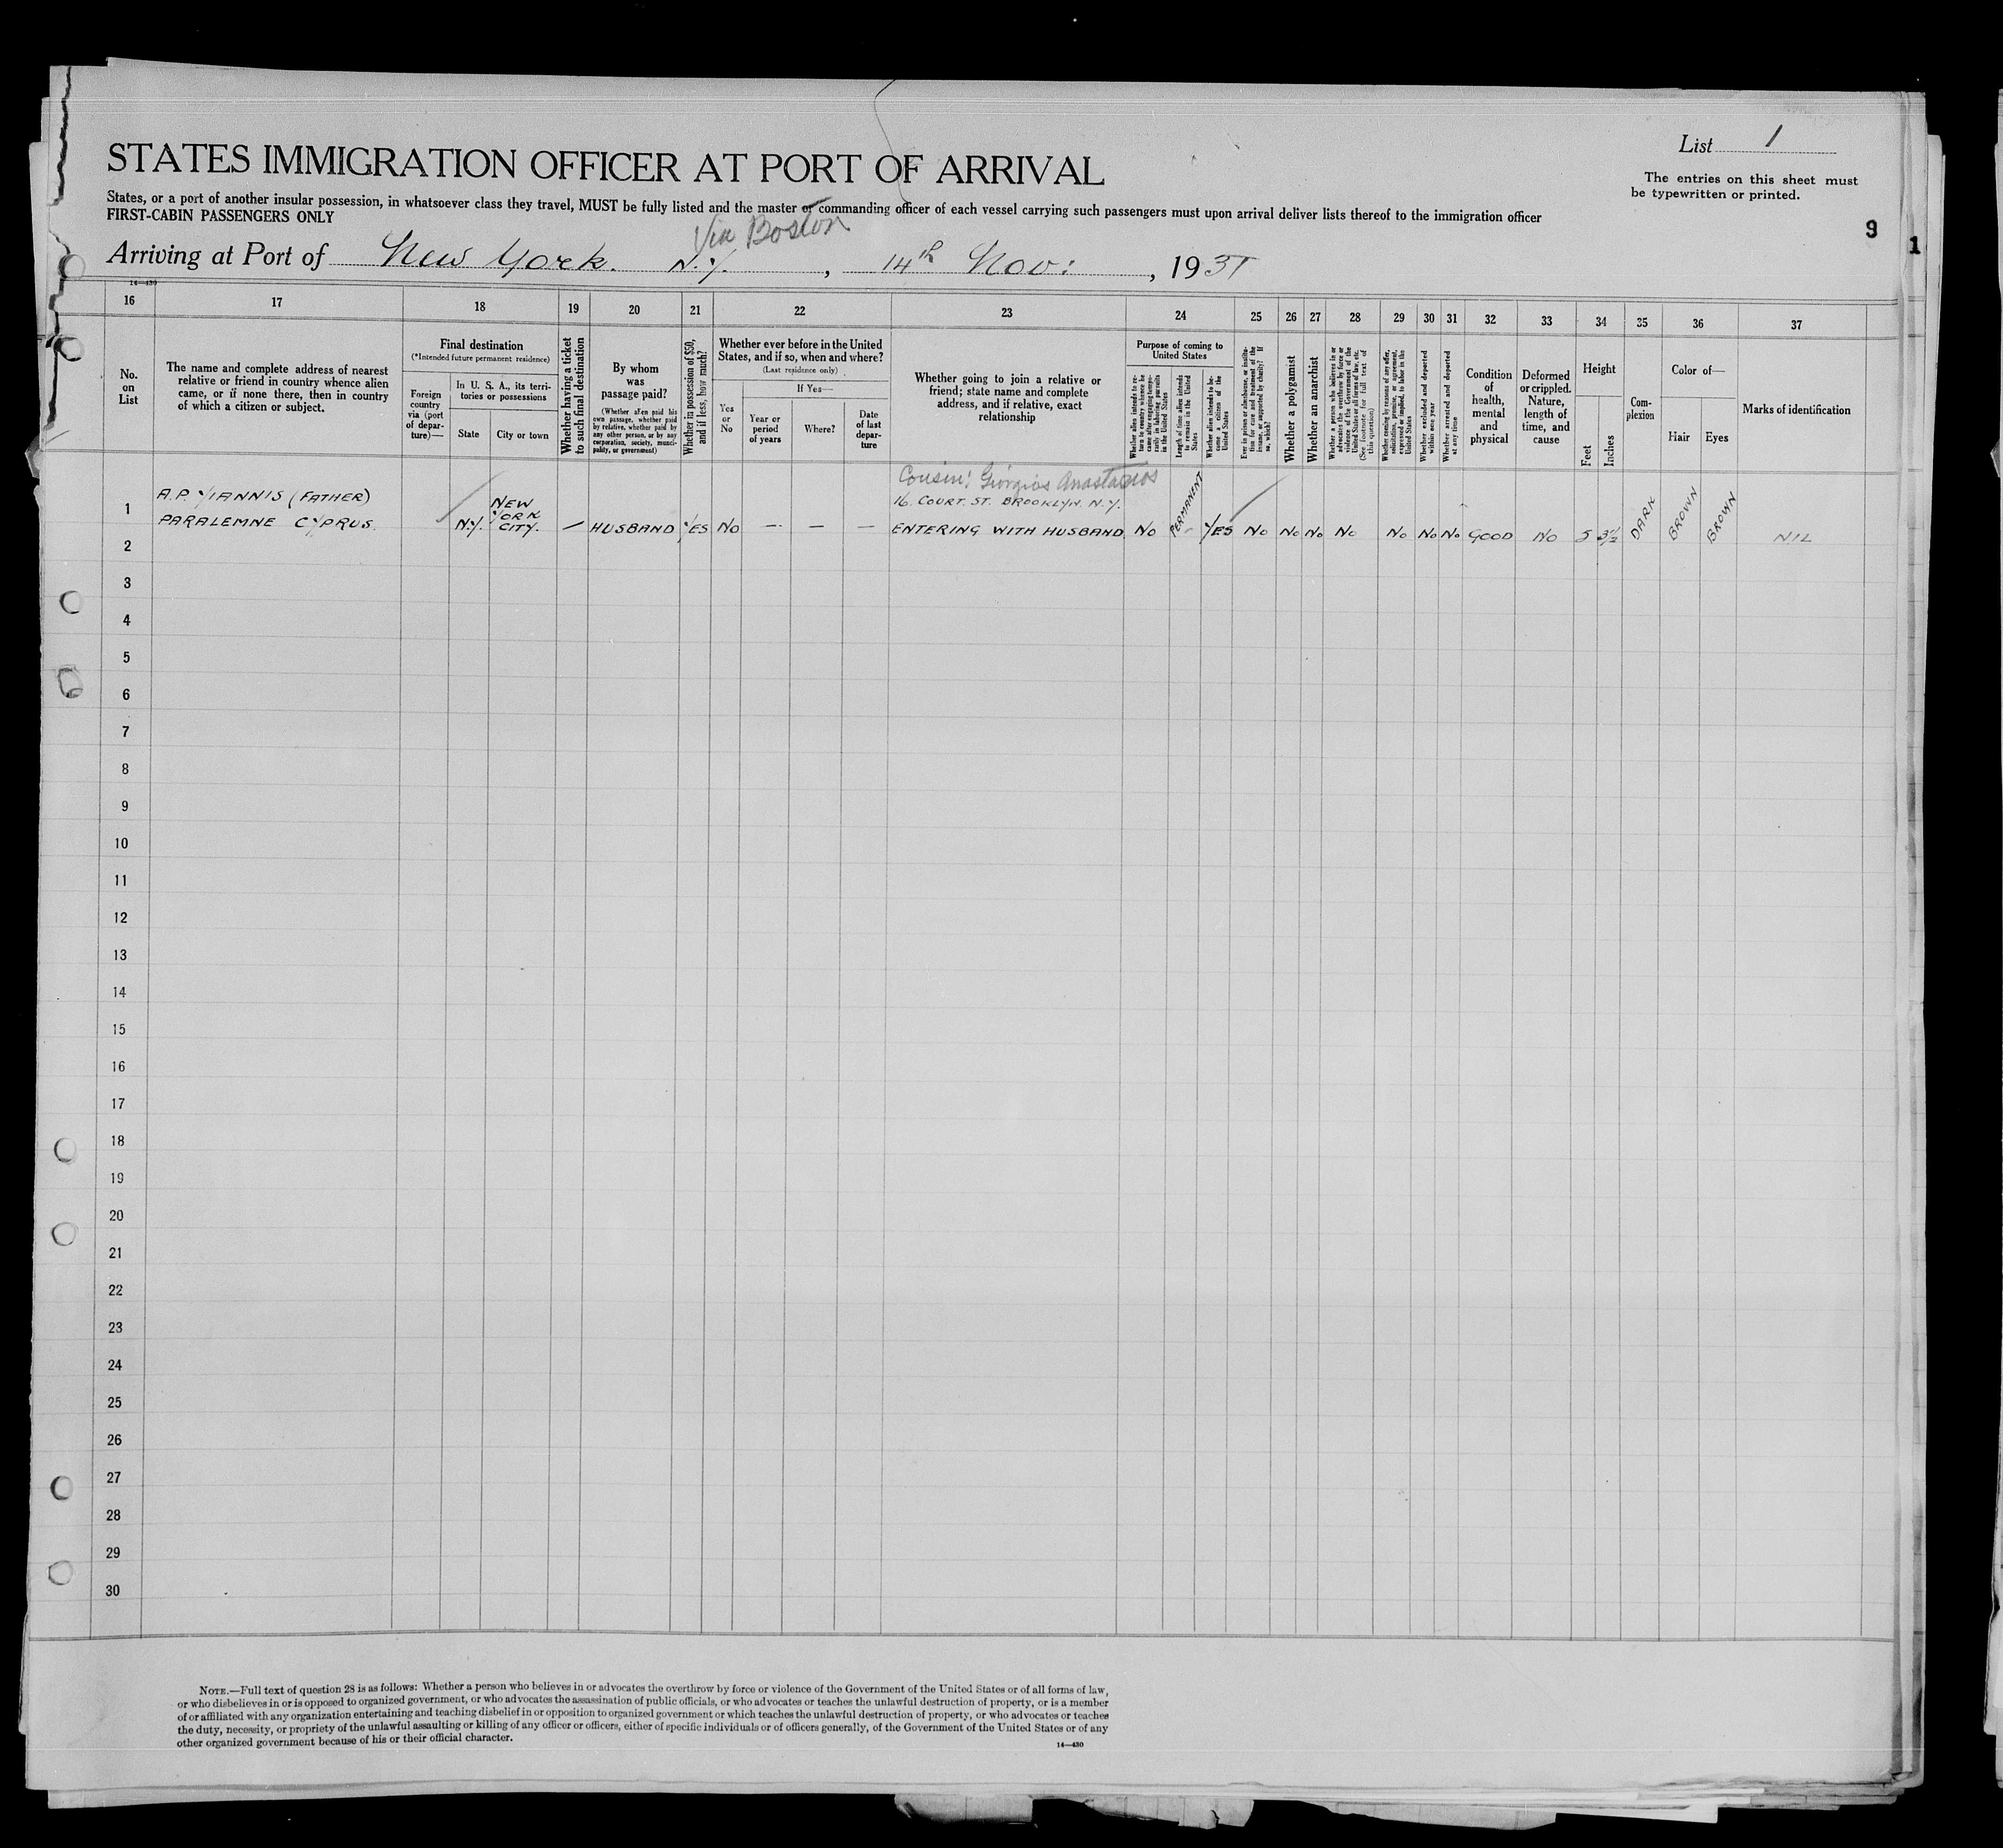 List 1
STATES IMMIGRATION OFFICER AT PORT OF ARRIVAL
The entries on this sheet must
be typewritten or printed.
States, or a port of another insular possession, in whatsoever class they travel, MUST be fully listed and the master or commanding officer of each vessel carrying such passengers must upon arrival deliver lists thereof to the immigration officer
FIRST-CABIN PASSENGERS ONLY
9
1
Via Boston
Arriving at Port of New York. N.Y. , 14th Nov: , 1931
14—430
16 17 18 19 20 21 22 23 24 25 26 27 28 29 30 31 32 33 34 35 36 37
No.
on
List
The name and complete address of nearest
relative or friend in country whence alien
came, or if none there, then in country
of which a citizen or subject.
Final destination
(*Intended future permanent residence)
Foreign
country
via (port
of depar-
ture)—
In U. S. A., its terri-
tories or possessions
State
City or town
Whether having a ticket
to such final destination
By whom
was
passage paid?
(Whether alien paid his
own passage, whether paid
by relative, whether paid by
any other person, or by any
corporation, society, munici-
pality, or government)
Whether in possession of $50,
and if less, how much?
Whether ever before in the United
States, and if so, when and where?
(Last residence only)
Yes
or
No
If Yes—
Year or
period
of years
Where?
Date
of last
depar-
ture
Whether going to join a relative or
friend; state name and complete
address, and if relative, exact
relationship
Purpose of coming to
United States
Whether alien intends to re-
turn to country whence he
came after engaging tempo-
rarily in laboring pursuits
in the United States
Length of time alien intends
to remain in the United
States
Whether alien intends to be-
come a citizen of the
United States
Ever in prison or almshouse, or institu-
tion for care and treatment of the
insane, or supported by charity? If
so, which?
Whether a polygamist
Whether an anarchist
Whether a person who believes in or
advocates the overthrow by force or
violence of the Government of the
United States or all forms of law, etc.
(See footnote for full text of
this question)
Whether coming by reason of any offer,
solicitation, promise, or agreement,
expressed or implied, to labor in the
United States
Whether excluded and deported
within one year
Whether arrested and deported
at any time
Condition
of
health,
mental
and
physical
Deformed
or crippled.
Nature,
length of
time, and
cause
Height
Feet
Inches
Com-
plexion
Color of—
Hair
Eyes
Marks of identification
1
A.P. YIANNIS (FATHER)
PARALEMNE CYPRUS.
N.Y.
NEW
YORK
CITY.
—
HUSBAND
YES
NO
—
—
—
Cousin: Giorgios Anastasios
16. COURT. ST. BROOKLYN. N.Y.
ENTERING WITH HUSBAND
NO
PERMANENT
YES
NO
NO
NO
NO
NO
NO
NO
GOOD
NO
5
3½
DARK
BROWN
BROWN
NIL
2
3
4
5
6
7
8
9
10
11
12
13
14
15
16
17
18
19
20
21
22
23
24
25
26
27
28
29
30
NOTE.—Full text of question 28 is as follows: Whether a person who believes in or advocates the overthrow by force or violence of the Government of the United States or of all forms of law,
or who disbelieves in or is opposed to organized government, or who advocates the assassination of public officials, or who advocates or teaches the unlawful destruction of property, or is a member
of or affiliated with any organization entertaining and teaching disbelief in or opposition to organized government or which teaches the unlawful destruction of property, or who advocates or teaches
the duty, necessity, or propriety of the unlawful assaulting or killing of any officer or officers, either of specific individuals or of officers generally, of the Government of the United States or of any
other organized government because of his or their official character.
14—430